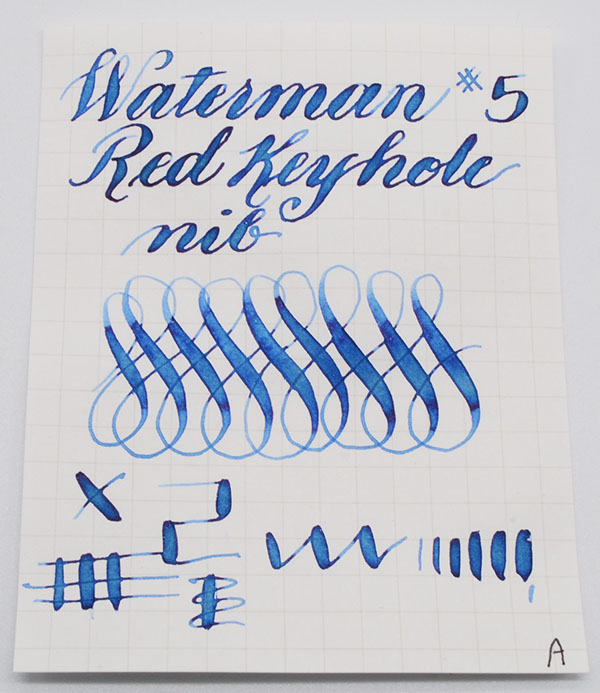 Waterman #5
Red Keyhole
nib
A